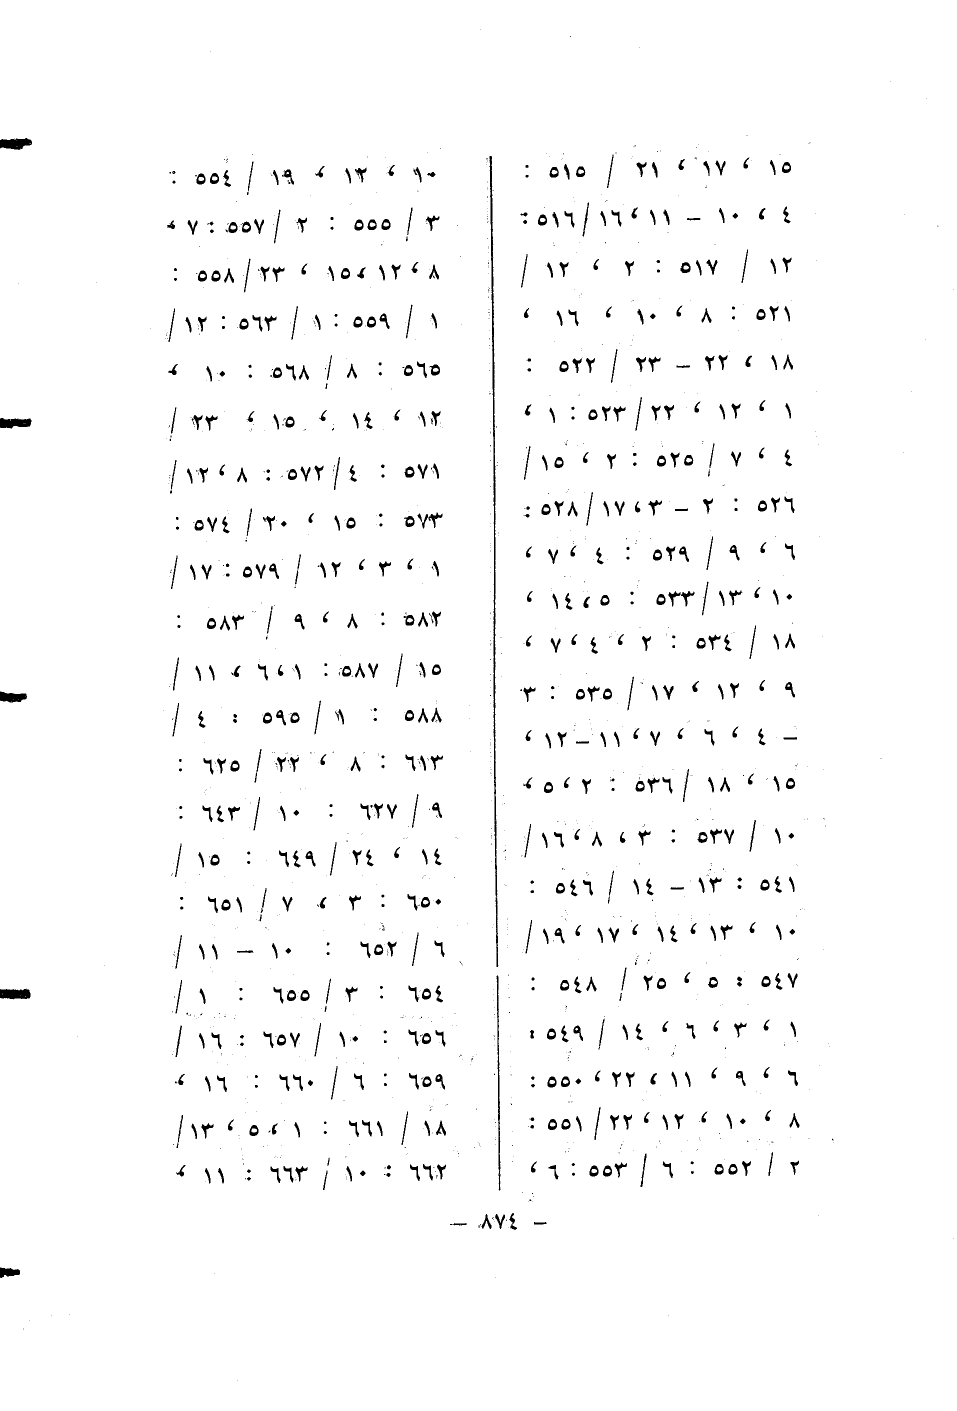 ١٥ ، ١٧ ، ٢١ / ٥١٥ :
٤ ، ١٠ – ١١ ، ١٦ / ٥١٦ :
١٢ / ٥١٧ : ٢ ، ١٢ /
٥٢١ : ٨ ، ١٠ ، ١٦ ،
١٨ ، ٢٢ – ٢٣ / ٥٢٢ :
١ ، ١٢ ، ٢٢ / ٥٢٣ : ١ ،
٤ ، ٧ / ٥٢٥ : ٢ ، ١٥ /
٥٢٦ : ٢ – ٣ ، ١٧ / ٥٢٨ :
٦ ، ٩ / ٥٢٩ : ٤ ، ٧ ،
١٠ ، ١٣ / ٥٣٣ : ٥ ، ١٤ ،
١٨ / ٥٣٤ : ٢ ، ٤ ، ٧ ،
٩ ، ١٢ ، ١٧ / ٥٣٥ : ٣
– ٤ ، ٦ ، ٧ ، ١١ – ١٢ ،
١٥ ، ١٨ / ٥٣٦ : ٢ ، ٥ ،
١٠ / ٥٣٧ : ٣ ، ٨ ، ١٦ /
٥٤١ : ١٣ – ١٤ / ٥٤٦ :
١٠ ، ١٣ ، ١٤ ، ١٧ ، ١٩ /
٥٤٧ : ٥ ، ٢٥ / ٥٤٨ :
١ ، ٣ ، ٦ ، ١٤ / ٥٤٩ :
٦ ، ٩ ، ١١ ، ٢٢ ، ٥٥٠ :
٨ ، ١٠ ، ١٢ ، ٢٢ / ٥٥١ :
٢ / ٥٥٢ : ٦ / ٥٥٣ : ٦ ،
١٠ ، ١٣ ، ١٩ / ٥٥٤ :
٣ / ٥٥٥ : ٢ / ٥٥٧ : ٧ ،
٨ ، ١٢ ، ١٥ ، ٢٣ / ٥٥٨ :
١ / ٥٥٩ : ١ / ٥٦٣ : ١٢ /
٥٦٥ : ٨ / ٥٦٨ : ١٠ ،
١٢ ، ١٤ ، ١٥ ، ٢٣ /
٥٧١ : ٤ / ٥٧٢ : ٨ ، ١٢ /
٥٧٣ : ١٥ ، ٢٠ / ٥٧٤ :
١ ، ٣ ، ١٢ / ٥٧٩ : ١٧ /
٥٨٢ : ٨ ، ٩ / ٥٨٣ :
١٥ / ٥٨٧ : ١ ، ٦ ، ١١ /
٥٨٨ : ١ / ٥٩٥ : ٤ /
٦١٣ : ٨ ، ٢٢ / ٦٢٥ :
٩ / ٦٢٧ : ١٠ / ٦٤٣ :
١٤ ، ٢٤ / ٦٤٩ : ١٥ /
٦٥٠ : ٣ ، ٧ / ٦٥١ :
٦ / ٦٥٢ : ١٠ – ١١ /
٦٥٤ : ٣ / ٦٥٥ : ١ /
٦٥٦ : ١٠ / ٦٥٧ : ١٦ /
٦٥٩ : ٦ / ٦٦٠ : ١٦ ،
١٨ / ٦٦١ : ١ ، ٥ ، ١٣ /
٦٦٢ : ١٠ / ٦٦٣ : ١١ ،
– ٨٧٤ –